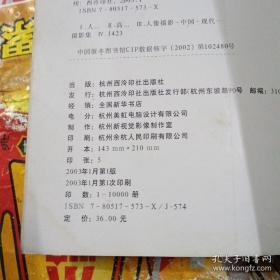 西泠印社, 2003.1
ISBN 7-80517-573-X
Ⅰ.人… Ⅱ.高… Ⅲ.人像摄影-中国-现代-
摄影集 Ⅳ.J423
中国版本图书馆CIP数据核字（2002）第102480号
出 版：杭州西泠印社出版社
发 行：杭州西泠印社出版社发行部（杭州东坡路90号 邮编：310
经 销：全国新华书店
电 分：杭州美虹电脑设计有限公司
制 作：杭州新视觉影像制作室
印 刷：杭州余杭人民印刷有限公司
开 本：143 mm×210 mm
印 张：5
2003年1月第1版
2003年1月第1次印刷
印 数：1-10000册
ISBN 7-80517-573-X/J·574
定 价：36.00 元
孔夫子旧书网